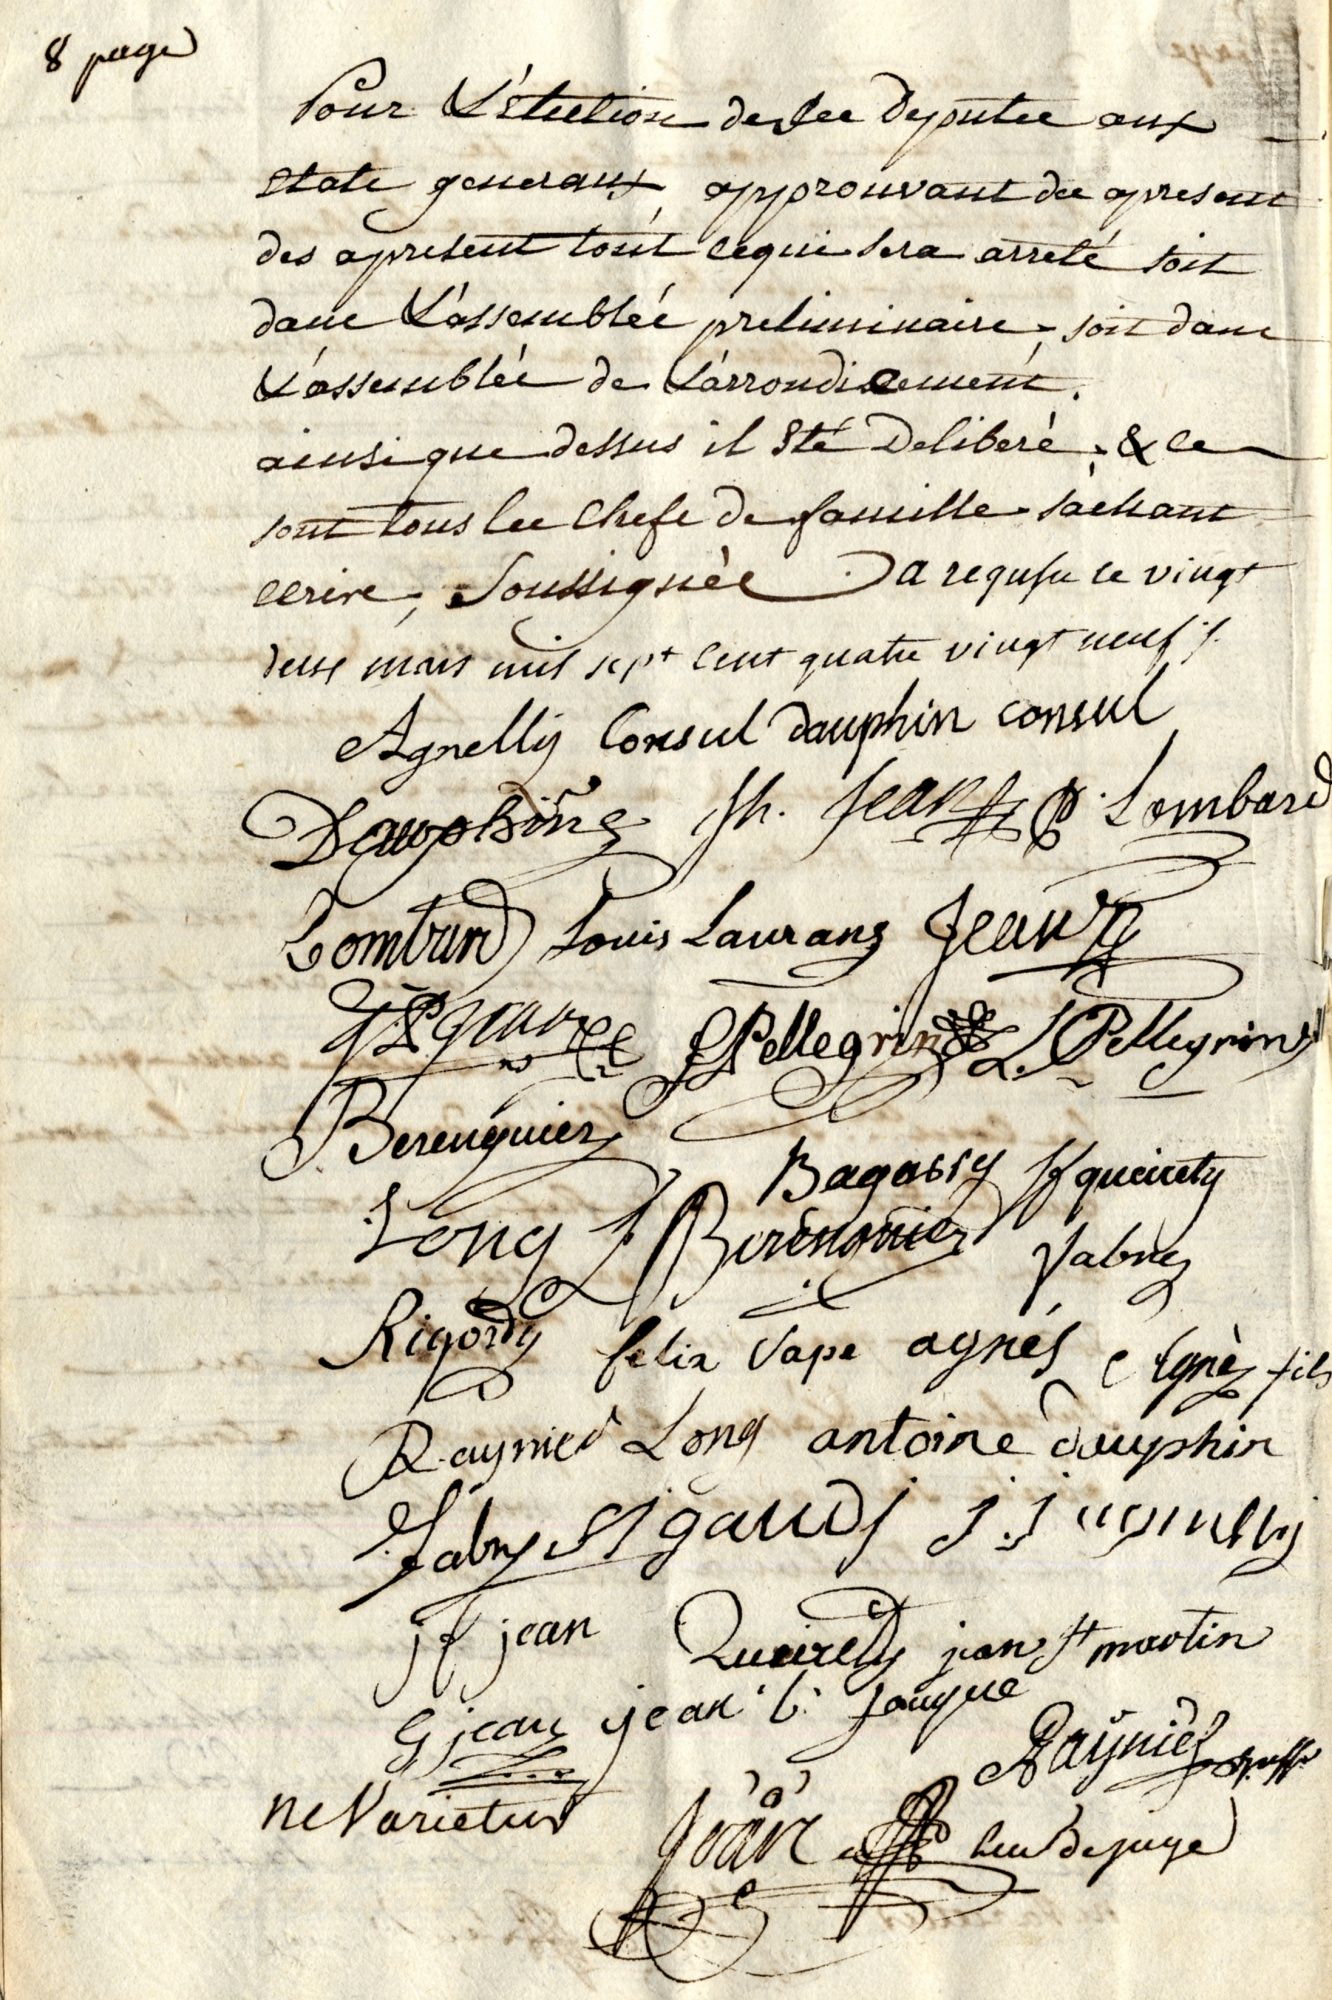 8 page
Pour L'éllection de ses députés aux
états generaux approuvant des apresent
des apresent tout cequi sera arreté soit
dans L'assemblée preliminaire, soit dans
L'assemblée de L'arrondicement.
ainsi que dessus il été Deliberé, & ce
sont tous les Chefs de famille sachant
ecrire, Soussignés a requsse ce vingt
deux mars mil sept cent quatre vingt neuf
Agnelly Consul dauphin consul
Dauphin jh. Jean Lombard
Lombard Louis Laurans Jean
Jean Pellegrin L Pellegrin
Berenguier
Bagarry queirety
Long J Berenguier fabre
Rigordy felix Pape agnés Agnès fils
Raynier Long antoine dauphin
fabre sigaud j.j agnelly
jf jean Queirety jean st martin
G jean jean b. jougue
Raynier greffier
ne Varietur Jean Lieut de juge